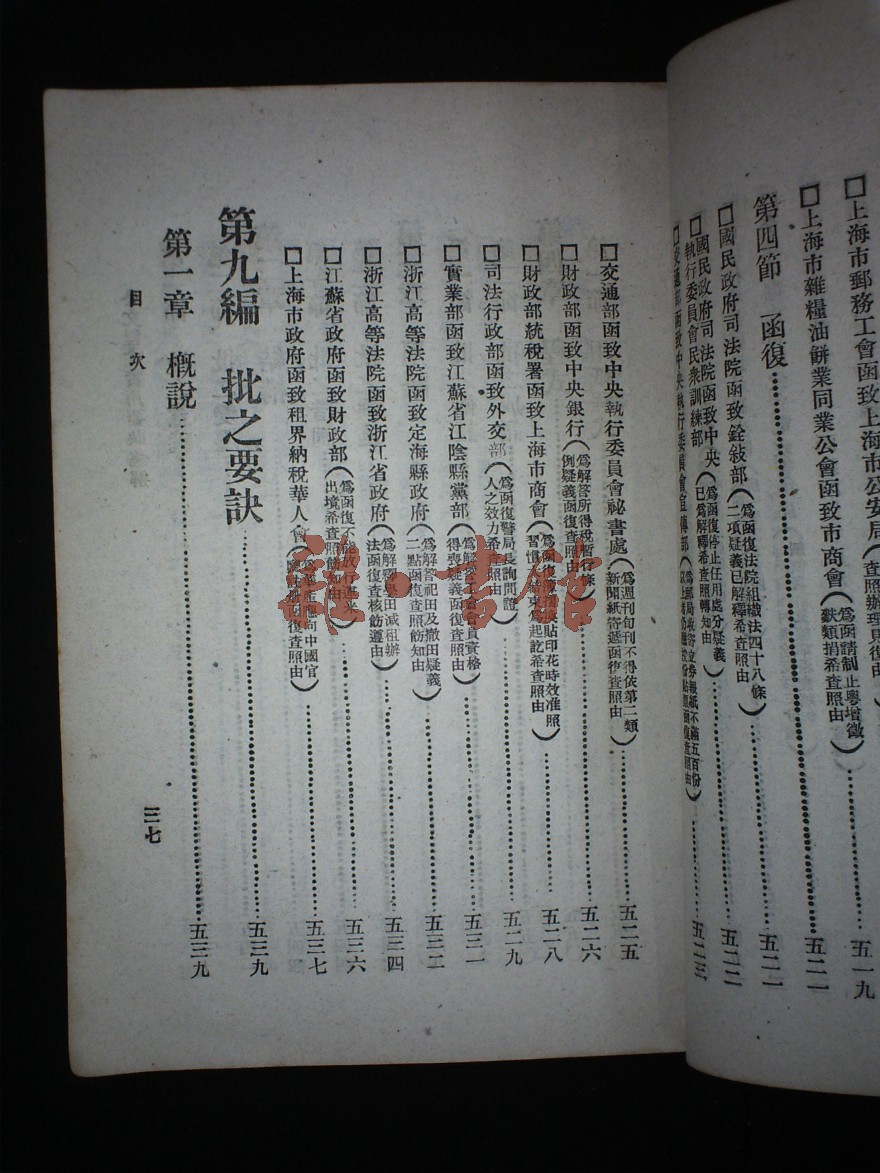 □上海市郵務工會函致上海市公安局(查照辦理見復由
□上海市雜糧油餅業同業公會函致市商會(爲函請制止粵增徵麩類捐希查照由)……五二一
第四節 函復……五二一
□國民政府司法院函致銓敍部(爲函復法院組織法四十八條二項疑義已解釋希查照由)……五二二
□國民政府司法院函致中央執行委員會民衆訓練部(爲函復停止任用處分疑義已爲解釋希查照轉知由)
□交通部函致中央執行委員會宣傳部 五二三
□交通部函致中央執行委員會祕書處(爲週刊旬刊不得依第二類新聞紙寄遞函復查照由)……五二五
□財政部函致中央銀行(爲解答所得稅暫行條例疑義函復查照由)……五二六
□財政部統稅署函致上海市商會(爲函復 貼印花時效准照習慣 結束爲起訖希查照由)……五二八
□司法行政部函致外交部(爲函復警局長詢問證人之效力希查照由)……五二九
□實業部函致江蘇省江陰縣黨部(爲解答工會會員資格得喪疑義函復查照由)……五三一
□浙江高等法院函致定海縣政府(爲解答祀田及撤田疑義二點函復查照飭知由)……五三二
□浙江高等法院函致浙江省政府(爲解釋學田減租辦法函復查核飭遵由)……五三四
□江蘇省政府函致財政部(爲函復不能放行 出境希查照飭知由)……五三六
□上海市政府函致租界納稅華人會(爲 應向中國官廳 函復查照由)……五三七
第九編 批之要訣……五三九
第一章 概說……五三九
目次
三七
五一九